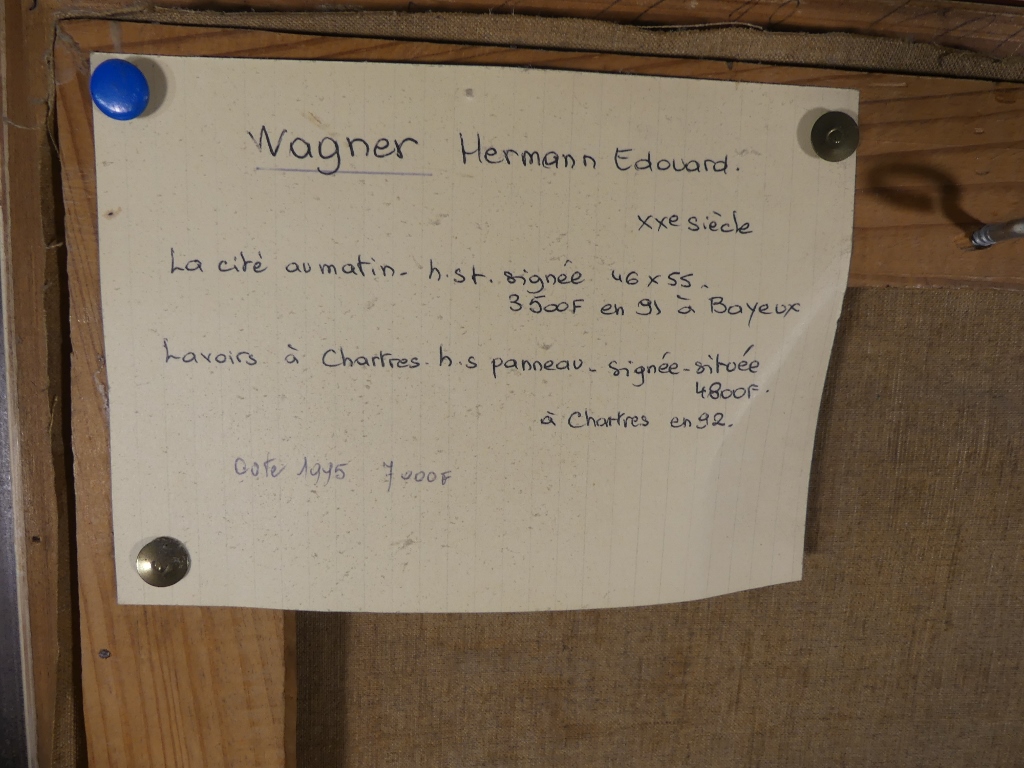 Wagner Hermann Edouard.
XXe siècle
La cité au matin - h.st. signée 46 x 55.
3500F en 91 à Bayeux
Lavoirs à Chartres - h.s panneau - signée - située
4800F.
à Chartres en 92.
Cote 1995 7000F